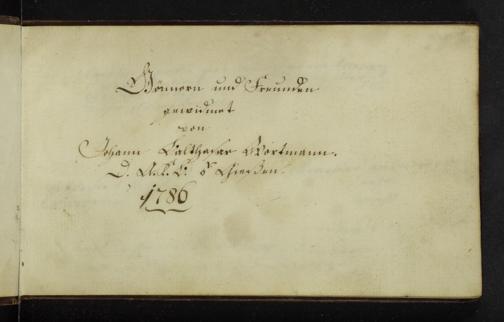 Gönnern und Freunden
gewidmet
von
Johann Balthasar Wortmann.
D.
1786